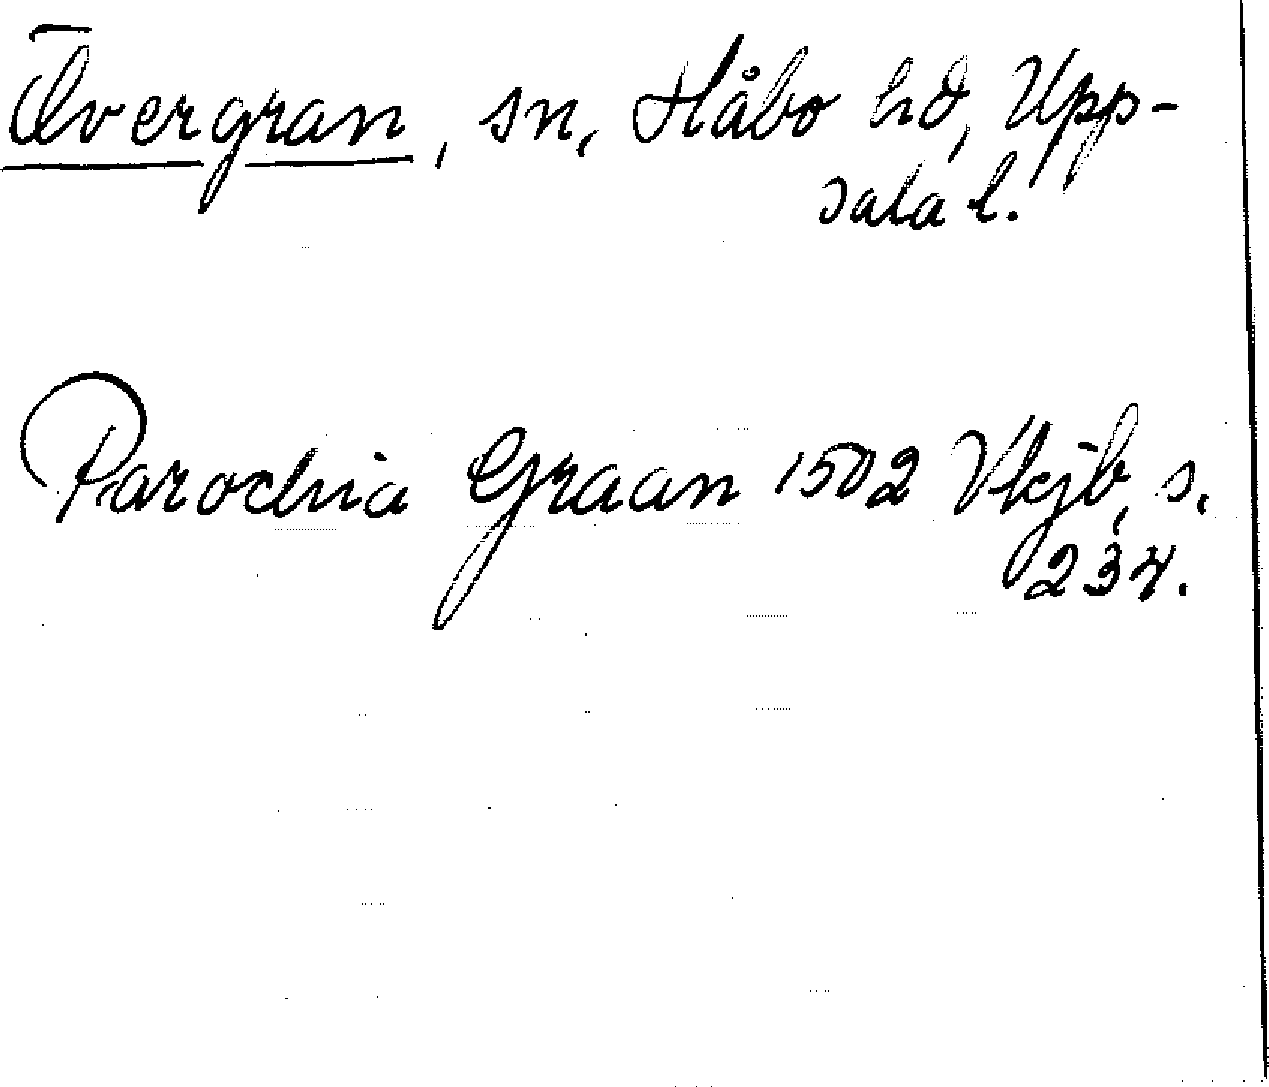 Övergran, sn, Håbo hd, Upp-
sala l.
Parochia Graan 1502 Vkjb, s.
234.